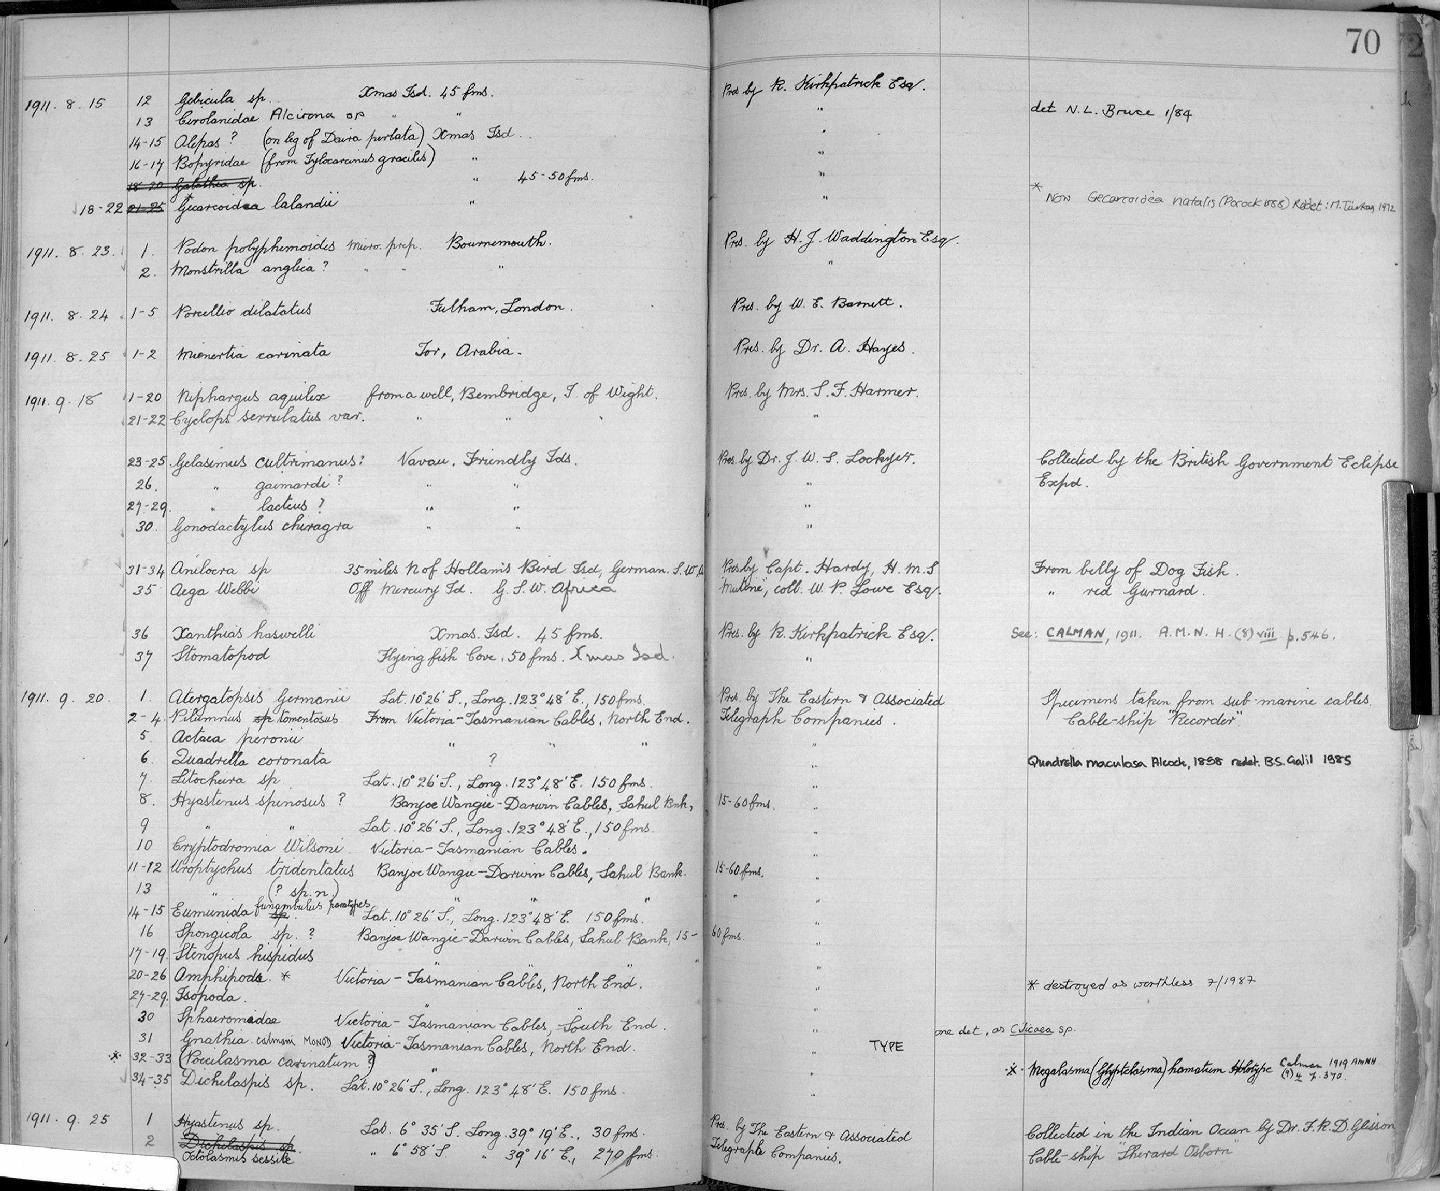 70
1911. 8. 15 12 Gebicula sp. Xmas Isd. 45 fms. Pres by R. Kirkpatrick Esq. det N. L. Bruce 1/84
13 Cirolanidae Alcirona sp " " "
14-15 Alepas ? (on leg of Daira perlata) Xmas Isd. "
16-17 Bopyridae (from Tylocarcinus gracilis) " "
18-20 Galathea sp. " 45-50 fms. "
18-22 21-25 Gecarcoidea lalandii " " * Now Gecarcoidea natalis (Pocock 1888) Redet: M. Türkay 1972
1911. 8. 23. 1. Podon polyphemoides Micro. prep. Bournemouth. Pres. by H. J. Waddington Esq.
2. Monstrilla anglica ? " " " "
1911. 8. 24 1-5 Porcellio dilatatus Fulham, London. Pres. by W. E. Barnett.
1911. 8. 25 1-2 carinata Tor, Arabia. Pres. by Dr. A. Hayes.
1911. 9. 18 1-20 Niphargus aquilex from a well, Bembridge, I. of Wight. Pres. by Mrs. S. F. Harmer.
21-22 Cyclops serrulatus var. " " " "
23-25 Gelasimus cultrimanus: Vavau, Friendly Ids. Pres. by Dr. J. W. S. Lockyer. Collected by the British Government Eclipse
26. " gaimardi ? " " " Expd.
27-29. " lacteus ? " " "
30. Gonodactylus chiragra " " "
31-34 Anilocra sp 35 miles N of Hollam's Bird Isd, German. S. W. Pres by Capt. Hardy, H. M. S From belly of Dog Fish.
35 Aega Webbi Off Mercury Id. G. S. W. Africa "Mutine", coll. W. P. Lowe Esq. " red Gurnard.
36 Xanthias haswelli Xmas. Isd. 45 fms. Pres. by R. Kirkpatrick Esq. See: CALMAN, 1911. A.M.N.H. (8) viii p. 546.
37 Stomatopod Flying fish Cove, 50 fms. Xmas Isd. "
1911. 9. 20. 1 Atergatopsis Germanii Lat. 10° 26' S., Long. 123° 48' E, 150 fms. Pres. by The Eastern & Associated Specimens taken from sub-marine cables.
2-4 Pilumnus sp tomentosus From Victoria-Tasmanian Cables, North End. Telegraph Companies. Cable-ship "Recorder"
5. Actaea peronii " " " "
6. Quadrella coronata ? " Quadrella maculosa Alcock, 1898 redet. B.S. Galil 1985
7. Litocheira sp Lat. 10° 26' S., Long. 123° 48' E. 150 fms. "
8. Hyastenus spinosus ? Banjoe Wangie-Darwin Cables, Sahul Bnk, 15-60 fms. "
9 " " Lat. 10° 26' S., Long. 123° 48' E., 150 fms. "
10 Cryptodromia Wilsoni Victoria-Tasmanian Cables. "
11-12 Uroptychus tridentatus Banjoe Wangie-Darwin Cables, Sahul Bank. 15-60 fms. "
13 " (? sp. n.) " " " " "
14-15 Eumunida sp. funambulus paratypes Lat. 10° 26' S., Long. 123° 48' E. 150 fms. "
16 Spongicola sp. ? Banjoe Wangie-Darwin Cables, Sahul Bank, 15-60 fms. "
17-19. Stenopus hispidus " " " "
20-26 Amphipoda. * Victoria-Tasmanian Cables, North End. " * destroyed as worthless 7/1987
27-29. Isopoda. " "
30 Sphaeromidae Victoria-Tasmanian Cables, South End. " one det, as Cilicaea sp.
31 Gnathia calmani MONOD Victoria-Tasmanian Cables, North End. " TYPE
* 32-33 (Poecilasma carinatum ?) " " * Megalasma (Glyptelasma) hamatum Holotype Calman 1919 AMNH (9) 4 p. 370.
34-35 Dichelaspis sp. Lat. 10° 26' S., Long. 123° 48' E. 150 fms. "
1911. 9. 25 1 Hyastenus sp. Lat. 6° 35' S. Long. 39° 19' E., 30 fms. Pres. by The Eastern & Associated Collected in the Indian Ocean by Dr. F. R. D. Glisson
2 Dichelaspis sp. " 6° 58' S " 39° 16' E., 270 fms. Telegraph Companies. Cable-ship "Sherard Osborn"
Octolasmis sessile